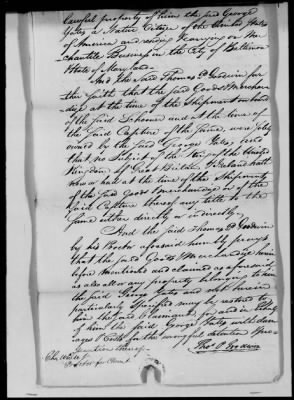 lawful property of him the said George
Yates a Native Citizen of the United States
of America and residing & carrying on Mer
chantile Business in the City of Baltimore
State of Maryland.
And the said Thomas P Goodwin
further saith that the said Goods & Merchan-
dize at the time of the Shipment on board
of the said Schooner and at the time of
the said Capture of the same, were solely
owned by the said George Yates, and
that no Subject of the King of the United
Kingdom of Great Britain & Ireland hath
or had at the time of the Shipment
of the said Goods & Merchandize or of the
said Capture thereof any title to the
same either directly or indirectly.
And the said Thomas P Goodwin
by his Proctor aforesaid humbly prays
that the said Goods & Merchandize herein
before mentioned and claimed as aforesaid
as also all or any property belonging to him
the said George Yates and not herein
particularly Specified may be restored to
him the said Claimant for and in behalf
of him the said George Yates with dam-
ages & Costs for the wrongful detention &
thereof.
Proctor for Claimt
Thos P Goodwin